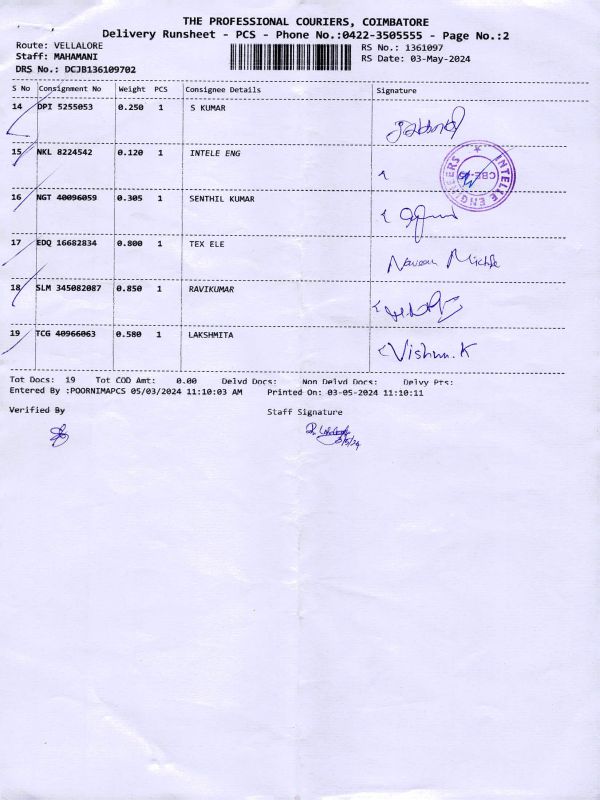 THE PROFESSIONAL COURIERS, COIMBATORE
Delivery Runsheet - PCS - Phone No.:0422-3505555 - Page No.:2
Route: VELLALORE RS No.: 1361097
Staff: MAHAMANI RS Date: 03-May-2024
DRS No.: DCJB136109702
S No Consignment No Weight PCS Consignee Details Signature
14 DPI 5255053 0.250 1 S KUMAR
15 NKL 8224542 0.120 1 INTELE ENG
INTELLE ENGINEERS
16 NGT 40096059 0.305 1 SENTHIL KUMAR
17 EDQ 16682834 0.800 1 TEX ELE Naveen
18 SLM 345082087 0.850 1 RAVIKUMAR
19 TCG 40966063 0.580 1 LAKSHMITA Vishnu.K
Tot Docs: 19 Tot COD Amt: 0.00 Delvd Docs: Non Delvd Docs: Delvy Pts:
Entered By :POORNIMAPCS 05/03/2024 11:10:03 AM Printed On: 03-05-2024 11:10:11
Verified By Staff Signature